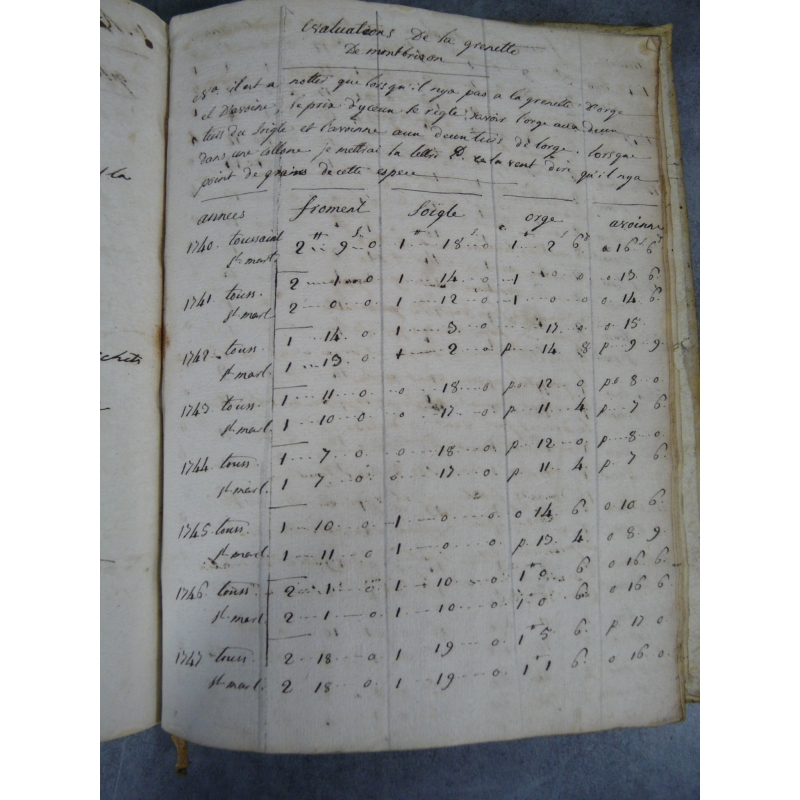 Evaluations De la grenette
De montbrison
il est a notter que lorsqu'il nya pas a la grenette D'orge
et D'avoine, le prix D'yceux se règle, savoir l'orge aux deux
tiers du Soigle et l'avoinne aux deux tiers de l'orge. lorsque
dans une collone je mettrai la lettre p. cela veut dire qu'il nya
point de grains de cette espece
années froment Soigle orge avoinne
1740. toussaint 2 9 0 1 18 0 1 2 6 0 16 6
st. mart.
1741 touss. 2 1 0 1 14 0 1 0 0 0 13 6
st mart 2 0 0 1 12 0 1 0 0 0 14 6
1742 touss. 1 14 0 1 3 0 17 0 0 15
st mart. 1 13 0 1 2 0 p. 14 8 p. 9 9
1743 touss. 1 11 0 0 18 0 p. 12 0 p. 8 0
st. mart. 1 10 0 0 17 0 p. 11 4 p. 7 6
1744 touss. 1 7 0 0 18 0 p. 12 0 p. 8 0
st mart. 1 7 0 0 17 0 p. 11 4 p. 7 6
1745 touss. 1 10 0 1 0 0 0 14 6 0 10 6
st. mart. 1 11 0 1 0 0 p. 13 4 0 8 9
1746 touss. 2 1 0 1 10 0 1 0 6 0 16 6
st mart. 2 1 0 1 10 0 1 0 6 0 16 6
1747 touss. 2 18 0 1 19 0 1 5 6 p. 17 0
st mart. 2 18 0 1 19 0 1 1 6 0 16 0